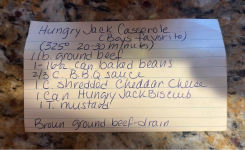 Hungry Jack Casserole
(Boys favorite)
(325° 20-30 minutes)
1 lb. ground beef
1- 16oz can baked beans
2/3 C. B.B.Q sauce
1 C. shredded Cheddar Cheese
1 Can Hungry Jack Biscuits
1 T. mustard
Brown ground beef-drain